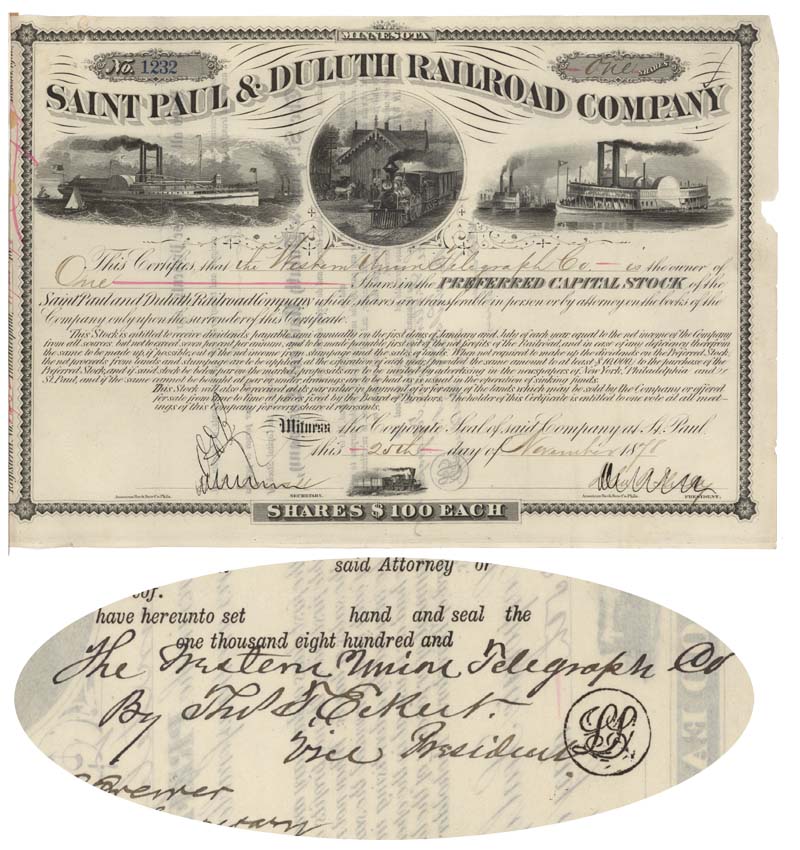 MINNESOTA
No. 1232
One SHARES
SAINT PAUL & DULUTH RAILROAD COMPANY
This Certifies that the Western Union Telegraph Co — is the owner of
One — Shares in the PREFERRED CAPITAL STOCK of the
Saint Paul and Duluth Railroad Company which shares are transferable in person or by attorney on the books of the
Company only upon the surrender of this Certificate.
This Stock is entitled to receive dividends, payable semi annually on the first days of January and July of each year equal to the net income of the Company
from all sources but not to exceed seven per cent per annum, and to be made payable first out of the net profits of the Railroad, and in case of any deficiency therefrom
the same to be made up, if possible, out of the net income from stumpage and the sales of lands. When not required to make up the dividends on the Preferred Stock,
the net proceeds from lands and stumpage are to be applied at the expiration of each year, provided the same amount to at least to the purchase of the
Preferred Stock, and if said stock be below par on the market, proposals are to be invited by advertising in the newspapers of New York, Philadelphia and
St. Paul, and if the same cannot be bought at par or under drawings are to be had as is usual in the operation of sinking funds.
This Stock will also be received at its par value in payment of or for any of the lands which may be sold by the Company or offered
for sale from time to time at prices fixed by the Board of Directors. The holder of this Certificate is entitled to one vote at all meet-
ings of this Company for every share it represents.
Witness the Corporate Seal of said Company at St. Paul,
this 25th day of November 1878
SECRETARY.
PRESIDENT.
American Bank Note Co. Phila.
American Bank Note Co. Phila.
SHARES $100 EACH
said Attorney or
of.
have hereunto set hand and seal the
one thousand eight hundred and
The Western Union Telegraph Co
By Tho T. Eckert.
Vice President
LS
Brewer